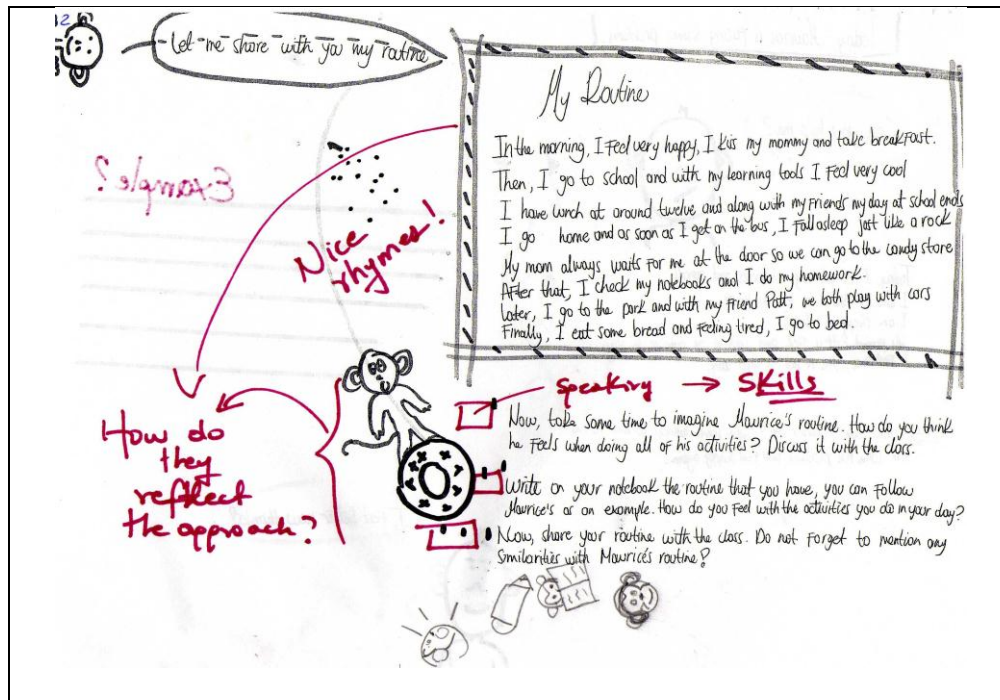 2
Let me share with you my routine
My Routine
In the morning, I feel very happy, I kiss my mommy and take breakfast.
Then, I go to school and with my learning tools I feel very cool
I have lunch at around twelve and along with my friends my day at school ends
I go home and as soon as I get on the bus, I fall asleep just like a rock
My mom always waits for me at the door so we can go to the candy store
After that, I check my notebooks and I do my homework.
Later, I go to the park and with my friend Patt, we both play with cars
Finally, I eat some bread and feeling tired, I go to bed.
Example?
Nice
rhymes!
speaking → Skills
Now, take some time to imagine Maurice's routine. How do you think
he feels when doing all of his activities? Discuss it with the class.
Write on your notebook the routine that you have, you can follow
Maurice's as an example. How do you feel with the activities you do in your day?
Now, share your routine with the class. Do not forget to mention any
similarities with Maurice's routine?
How do
they
reflect
the approach?